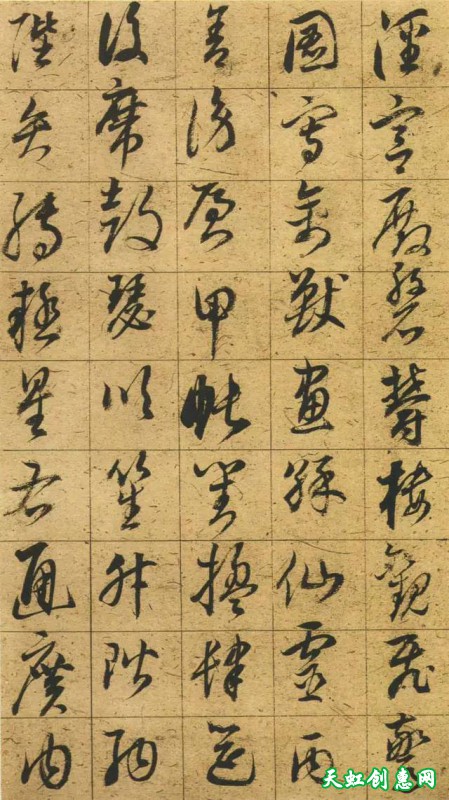 涇宫殿磐欝樓觀飛驚
圖寫禽獸畫綵仙靈丙
舍傍啓甲帳對楹肆筵
設席鼓瑟吹笙升階納
陛弁轉疑星右通廣内
天虹创惠网